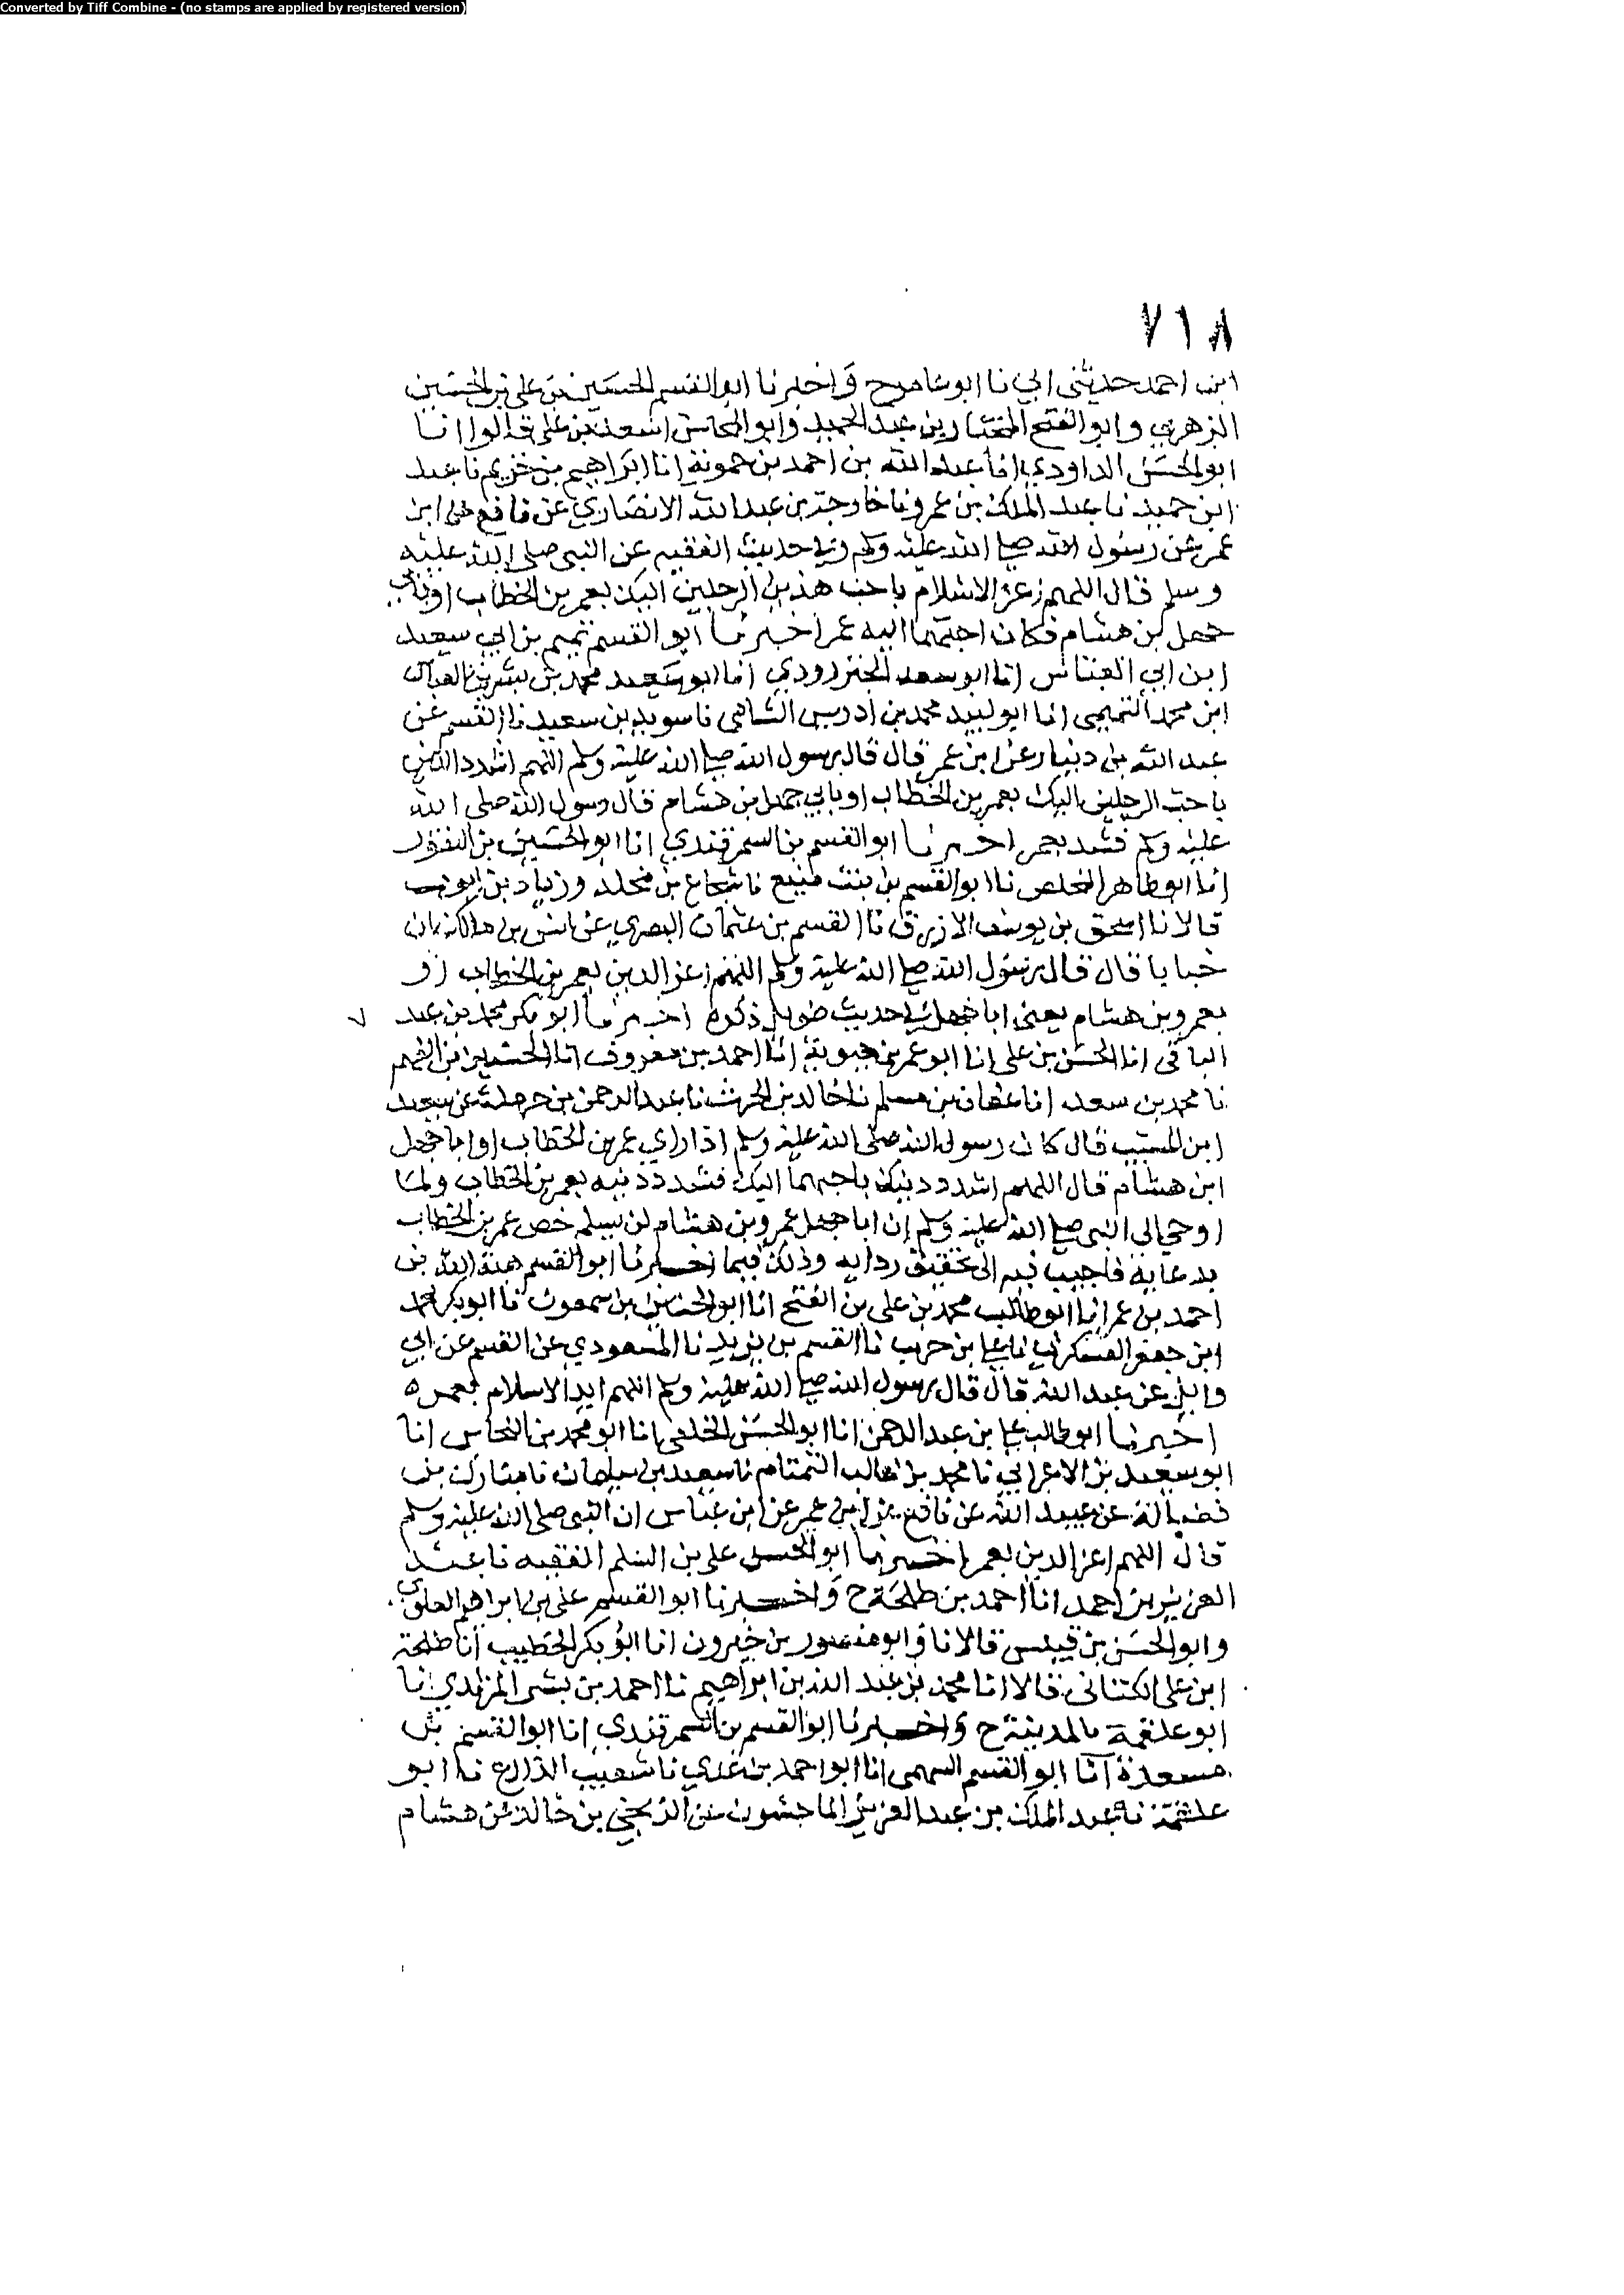 Converted by Tiff Combine - (no stamps are applied by registered version)
٧١٨
ابن احمد حدثني ابي نا ابو عامر ح واخبرنا ابو القسم الحسين بن علي بن الحسين
الزهري وابو الفتح المختار بن عبد الحميد وابو المحاسن اسعد بن علي قالوا انا
ابو الحسن الداودي انا عبد الله بن احمد بن حموية انا ابراهيم بن خزيم نا عبد
ابن حميد نا عبد الملك بن عمرو نا خارجة بن عبد الله الانصاري عن نافع عن ابن
عمر عن رسول الله صلى الله عليه وسلم وفي حديث الفقيه عن النبي صلى الله عليه
وسلم قال اللهم اعز الاسلام باحب هذين الرجلين اليك بعمر بن الخطاب او بابي
جهل بن هشام فكان احبهما اليه عمر اخبرنا ابو القسم تميم بن ابي سعيد
ابن ابي العباس انا ابو سعد الجنزرودي انا ابو سعيد محمد بن بشر بن العباس
ابن محمد التميمي انا ابو لبيد محمد بن ادريس الشامي نا سويد بن سعيد نا القسم عن
عبد الله بن دينار عن ابن عمر قال قال رسول الله صلى الله عليه وسلم اللهم اشدد الدين
باحب الرجلين اليك بعمر بن الخطاب او بابي جهل بن هشام قال رسول الله صلى الله
عليه وسلم فشد بعمر اخبرنا ابو القسم بن السمرقندي انا ابو الحسين بن النقور
انا ابو طاهر المخلص نا ابو القسم بن بنت منيع نا شجاع بن مخلد وزياد بن ايوب
قالا نا اسحق بن يوسف الازرق نا القسم بن عثمان البصري عن انس بن مالك ان
خبابا قال قال رسول الله صلى الله عليه وسلم اللهم اعز الدين بعمر بن الخطاب او
بعمرو بن هشام يعني ابا جهل في حديث طويل ذكره اخبرنا ابو بكر محمد بن عبد
الباقي انا الحسن بن علي انا ابو عمر بن حيوية انا احمد بن معروف انا الحسين بن الفهم
نا محمد بن سعد انا عفان بن مسلم نا خالد بن الحرث نا عبد الرحمن بن حرملة عن سعيد
ابن المسيب قال كان رسول الله صلى الله عليه وسلم اذا راي عمر بن الخطاب او ابا جهل
ابن هشام قال اللهم اشدد دينك باحبهما اليك فشدد دينه بعمر بن الخطاب ولما
اوحي الى النبي صلى الله عليه وسلم ان ابا جهل عمرو بن هشام لن يسلم خص عمر بن الخطاب
بدعايه فاجيب فيه الى تحقيق ردايه وذلك فيما اخبرنا ابو القسم هبة الله بن
احمد بن عمر انا ابو طالب محمد بن علي بن الفتح انا ابو الحسين بن سمعون نا ابو بكر محمد
ابن جعفر العسكري نا علي بن حرب نا القسم بن يزيد نا المسعودي عن القسم عن ابي
وايل عن عبد الله قال قال رسول الله صلى الله عليه وسلم اللهم ايد الاسلام بعمر ه
اخبرنا ابو طالب علي بن عبد الرحمن انا ابو الحسن الخلعي انا ابو محمد بن النحاس انا
ابو سعيد بن الاعرابي نا محمد بن غالب التمتام نا سعيد بن سليمان نا مبارك بن
فضالة عن عبيد الله عن نافع عن ابن عمر عن ابن عباس ان النبي صلى الله عليه وسلم
قال اللهم اعز الدين بعمر اخبرنا ابو الحسن علي بن المسلم الفقيه نا عبد
العزيز بن احمد انا احمد بن طلحة ح واخبرنا ابو القسم علي بن ابراهيم العلوي
وابو الحسن بن قبيس قالا نا وابو منصور بن خيرون انا ابو بكر الخطيب انا طلحة
ابن علي الكتاني قالا انا محمد بن عبد الله بن ابراهيم نا احمد بن بشر المرثدي نا
ابو علقمة بالمدينة ح واخبرنا ابو القسم بن السمرقندي انا ابو القسم بن
مسعدة انا ابو القسم السهمي انا ابو احمد بن عدي نا شعيب الذارع نا ابو
علقمة نا عبد الملك بن عبد العزيز الماجشون عن الزنجي بن خالد عن هشام